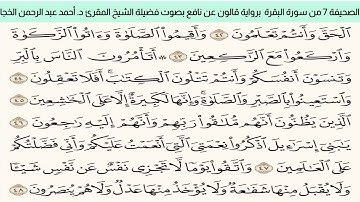 الصحيفة 7 من سورة البقرة برواية قالون عن نافع بصوت فضيلة الشيخ المقرئ د. أحمد عبد الرحمن الخجا
اَ۬لْحَقَّ وَأَنتُمْ تَعْلَمُونَۖ ٤١ وَأَقِيمُواْ اُ۬لصَّلَوٰةَ وَءَاتُواْ اُ۬لزَّكَوٰةَ
وَارْكَعُواْ مَعَ اَ۬لرَّٰكِعِينَۖ ٤٢ ۞ أَتَأْمُرُونَ اَ۬لنَّاسَ بِالْبِرِّ
وَتَنسَوْنَ أَنفُسَكُمْ وَأَنتُمْ تَتْلُونَ اَ۬لْكِتَٰبَۖ أَفَلَا تَعْقِلُونَۖ ٤٣
وَاسْتَعِينُواْ بِالصَّبْرِ وَالصَّلَوٰةِۖ وَإِنَّهَا لَكَبِيرَةٌ اِلَّا عَلَى اَ۬لْخَٰشِعِينَ ٤٤
اَ۬لذِينَ يَظُنُّونَ أَنَّهُم مُّلَٰقُواْ رَبِّهِمْ وَأَنَّهُمْ إِلَيْهِ رَٰجِعُونَۖ ٤٥
يَٰبَنِےٓ إِسْرَآءِيلَ اَ۟ذْكُرُواْ نِعْمَتِيَ اَ۬لتِےٓ أَنْعَمْتُ عَلَيْكُمْ وَأَنِّے فَضَّلْتُكُمْ
عَلَى اَ۬لْعَٰلَمِينَۖ ٤٦ وَاتَّقُواْ يَوْماً لَّا تَجْزِے نَفْسٌ عَن نَّفْسٖ شَيْـٔاً
وَلَا يُقْبَلُ مِنْهَا شَفَٰعَةٌ وَلَا يُؤْخَذُ مِنْهَا عَدْلٌ وَلَا هُمْ يُنصَرُونَۖ ٤٧